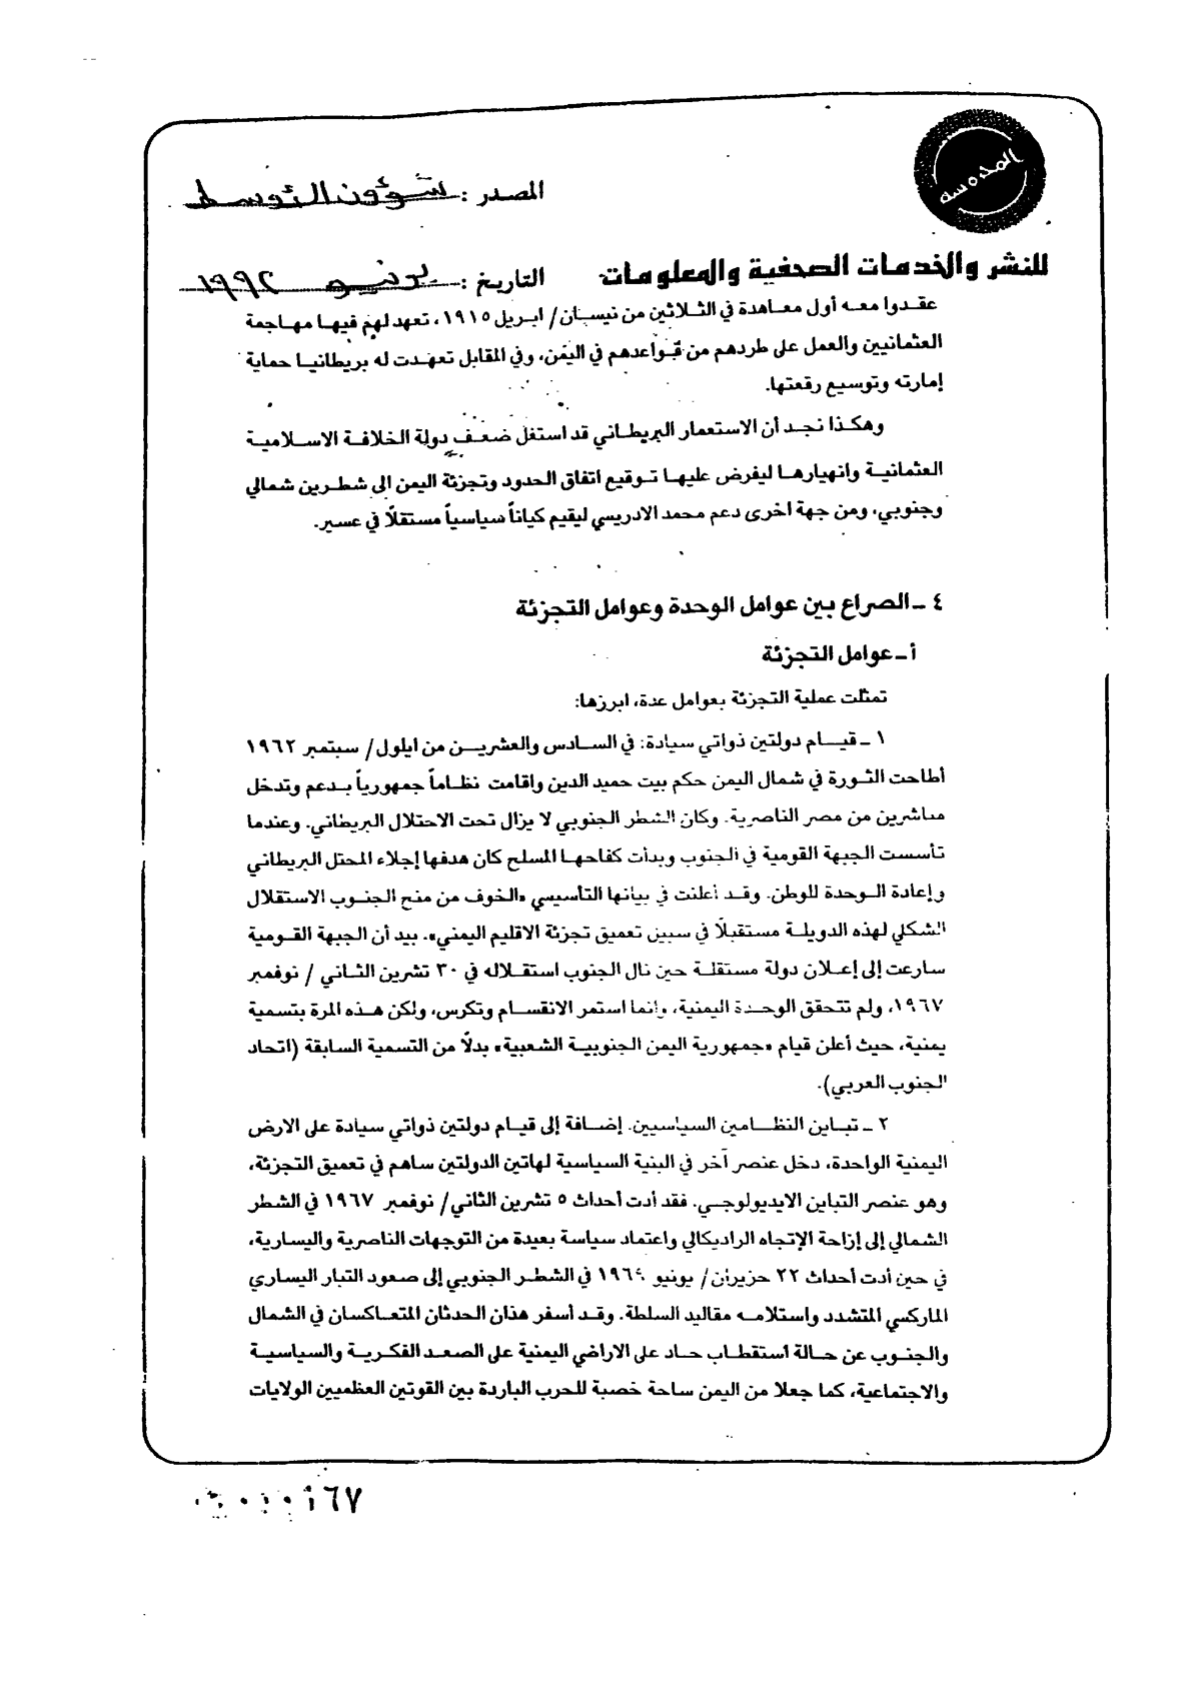 المحروسة
المصدر : شؤون الأوسط
للنشر والخدمات الصحفية والمعلومات
التاريخ : يونيو ١٩٩٢
عقدوا معه أول معاهدة في الثلاثين من نيسان/ ابريل ١٩١٥، تعهد لهم فيها مهاجمة
العثمانيين والعمل على طردهم من قواعدهم في اليمن، وفي المقابل تعهدت له بريطانيا حماية
إمارته وتوسيع رقعتها.
وهكذا نجد أن الاستعمار البريطاني قد استغل ضعف دولة الخلافة الاسلامية
العثمانية وانهيارها ليفرض عليها توقيع اتفاق الحدود وتجزئة اليمن الى شطرين شمالي
وجنوبي، ومن جهة اخرى دعم محمد الادريسي ليقيم كياناً سياسياً مستقلاً في عسير.
٤ ـ الصراع بين عوامل الوحدة وعوامل التجزئة
أ ـ عوامل التجزئة
تمثلت عملية التجزئة بعوامل عدة، ابرزها:
١ ـ قيام دولتين ذواتي سيادة: في السادس والعشرين من ايلول/ سبتمبر ١٩٦٢
أطاحت الثورة في شمال اليمن حكم بيت حميد الدين واقامت نظاماً جمهورياً بدعم وتدخل
مباشرين من مصر الناصرية. وكان الشطر الجنوبي لا يزال تحت الاحتلال البريطاني. وعندما
تأسست الجبهة القومية في الجنوب وبدأت كفاحها المسلح كان هدفها إجلاء المحتل البريطاني
وإعادة الوحدة للوطن. وقد أعلنت في بيانها التأسيسي «الخوف من منح الجنوب الاستقلال
الشكلي لهذه الدويلة مستقبلاً في سبيل تعميق تجزئة الاقليم اليمني». بيد أن الجبهة القومية
سارعت إلى إعلان دولة مستقلة حين نال الجنوب استقلاله في ٣٠ تشرين الثاني / نوفمبر
١٩٦٧، ولم تتحقق الوحدة اليمنية، وانما استمر الانقسام وتكرس، ولكن هذه المرة بتسمية
يمنية، حيث أعلن قيام «جمهورية اليمن الجنوبية الشعبية» بدلاً من التسمية السابقة (اتحاد
الجنوب العربي).
٢ ـ تباين النظامين السياسيين. إضافة إلى قيام دولتين ذواتي سيادة على الارض
اليمنية الواحدة، دخل عنصر آخر في البنية السياسية لهاتين الدولتين ساهم في تعميق التجزئة،
وهو عنصر التباين الايديولوجي. فقد أدت أحداث ٥ تشرين الثاني/ نوفمبر ١٩٦٧ في الشطر
الشمالي إلى إزاحة الإتجاه الراديكالي واعتماد سياسة بعيدة من التوجهات الناصرية واليسارية،
في حين أدت أحداث ٢٢ حزيران/ يونيو ١٩٦٩ في الشطر الجنوبي إلى صعود التيار اليساري
الماركسي المتشدد واستلامه مقاليد السلطة. وقد أسفر هذان الحدثان المتعاكسان في الشمال
والجنوب عن حالة استقطاب حاد على الاراضي اليمنية على الصعد الفكرية والسياسية
والاجتماعية، كما جعلا من اليمن ساحة خصبة للحرب الباردة بين القوتين العظميين الولايات